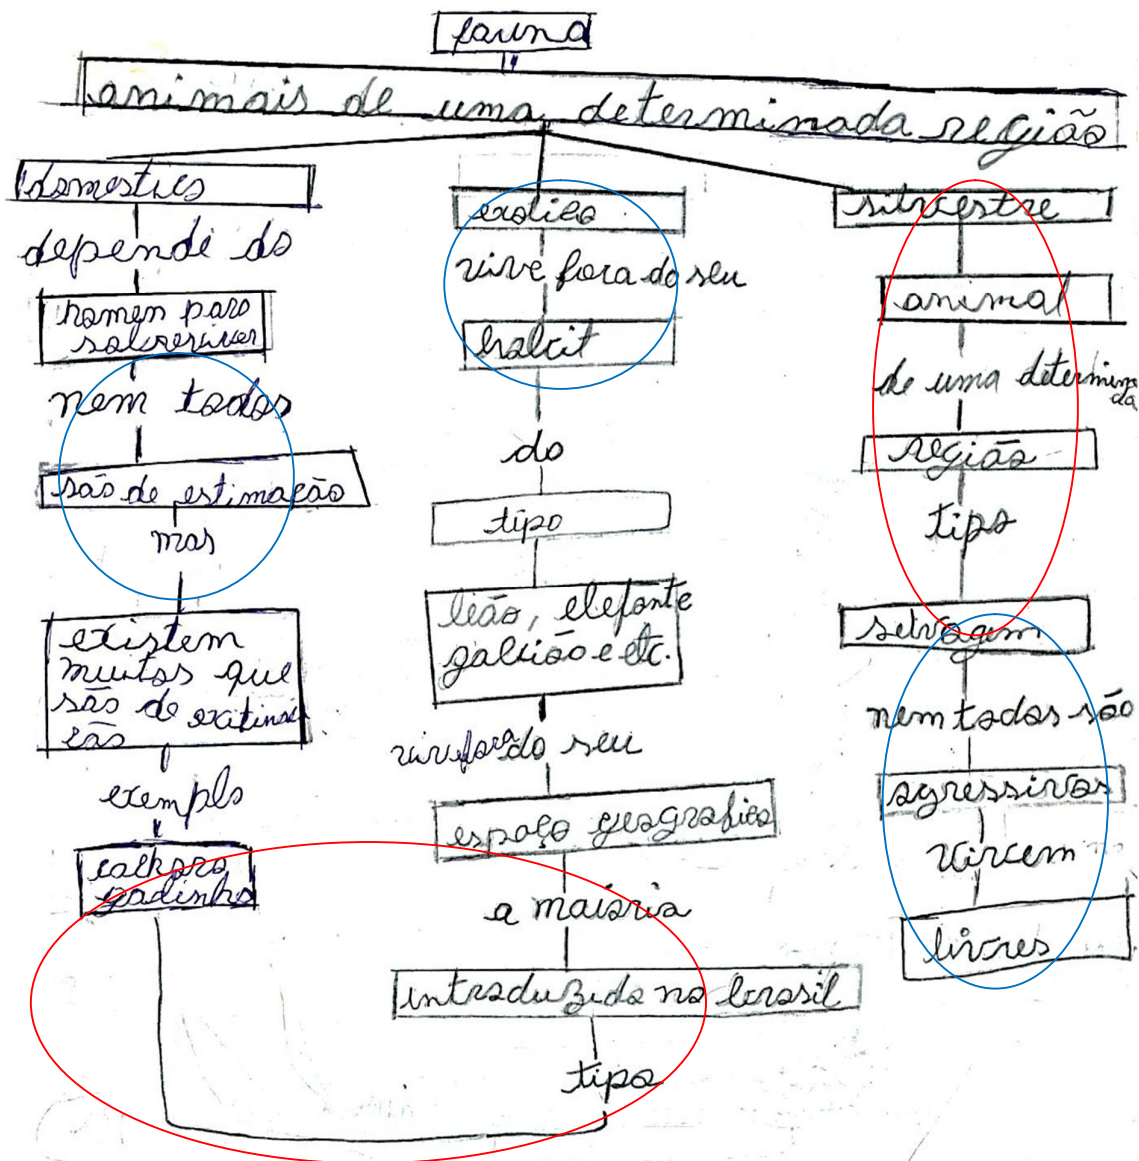 fauna
animais de uma determinada região
domestico
depende do
homen para
sobreviver
nem todos
são de estimação
mas
existem
muitos que
são de
exemplo
gadinho
exotico
vive fora do seu
habit
do
tipo
leão, elefante
galvião e etc.
vive fora do seu
espaço geografico
a maioria
introduzido no brasil
tipo
silvestre
animal
de uma determina
da
região
tipo
selvagem
nem todos são
agressivos
vivem
livres